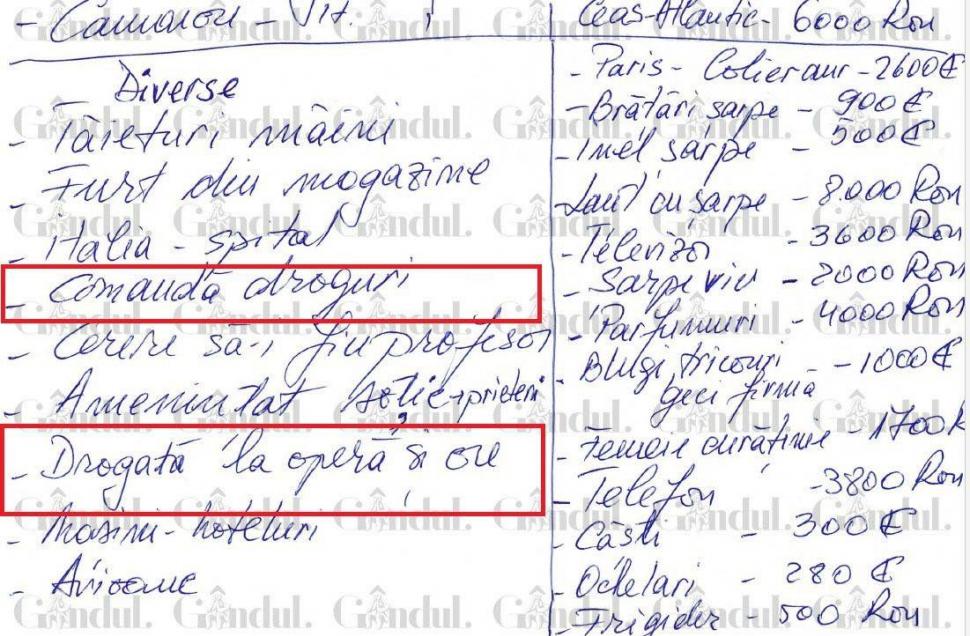 - Camarou - Vit.
Diverse
- Tăieturi mâini
- Furt din magazine
- italia - spital
- Comandă droguri
- Cerere să-i fiu profesor
- Amenințat soție + prieteni
- Drogată la operă și
- Masini - hoteluri
-
Ceas-Atlantic - 6000 Ron
- Paris - Colier aur - 2600 €
- Brățări sarpe - 900 €
- Inel sarpe - 500 €
- Lanț cu șarpe - 8.000 Ron
- Televizor - 3600 Ron
- Sarpe viu - 2000 Ron
- Parfumuri - 4000 Ron
- Blugi, tricouri - 1000 €
geci firma
- Femeie curățenie - 1700
- Telefon - 3800 Ron
- Căsti - 300 €
- Ochelari - 280 €
- Frigider - 500 Ron
Gândul.